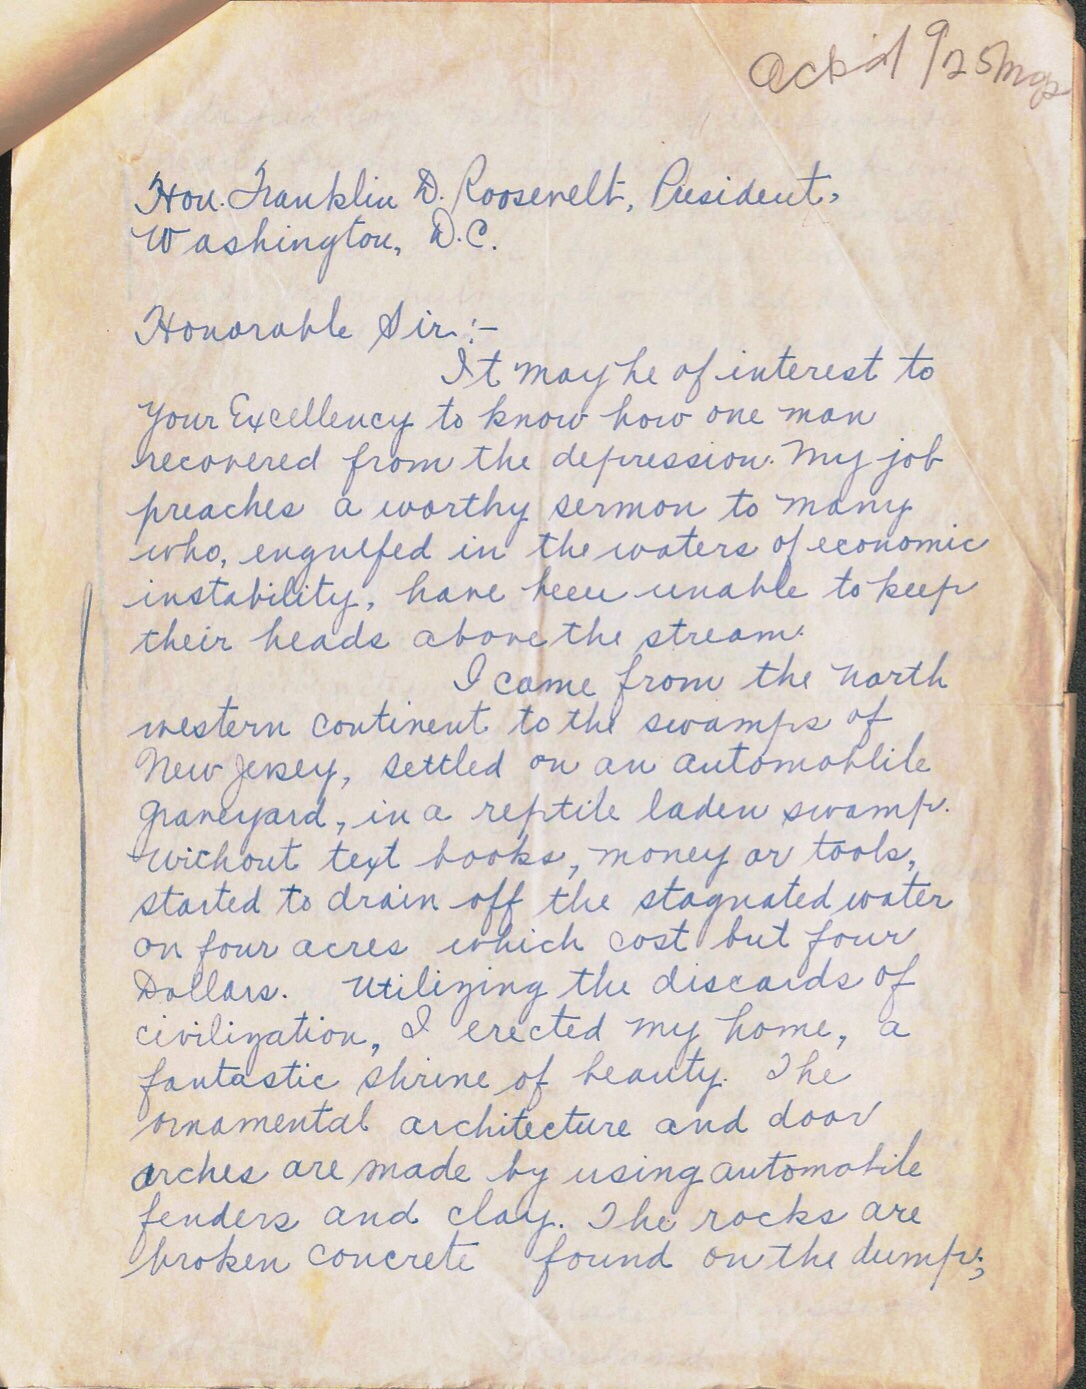 Ack'd 9/25 mgp
Hon. Franklin D. Roosevelt, President,
Washington, D.C.
Honorable Sir:-
It may be of interest to
Your Excellency to know how one man
recovered from the depression. My job
preaches a worthy sermon to many
who, engulfed in the waters of economic
instability, have been unable to keep
their heads above the stream.
I came from the north
western continent to the swamps of
New Jersey, settled on an automoblile
graveyard, in a reptile laden swamp.
Without text books, money or tools,
started to drain off the stagnated water
on four acres which cost but four
Dollars. Utilizing the discards of
civilization, I erected my home, a
fantastic shrine of beauty. The
ornamental architecture and door
arches are made by using automobile
fenders and clay. The rocks are
broken concrete found on the dump;